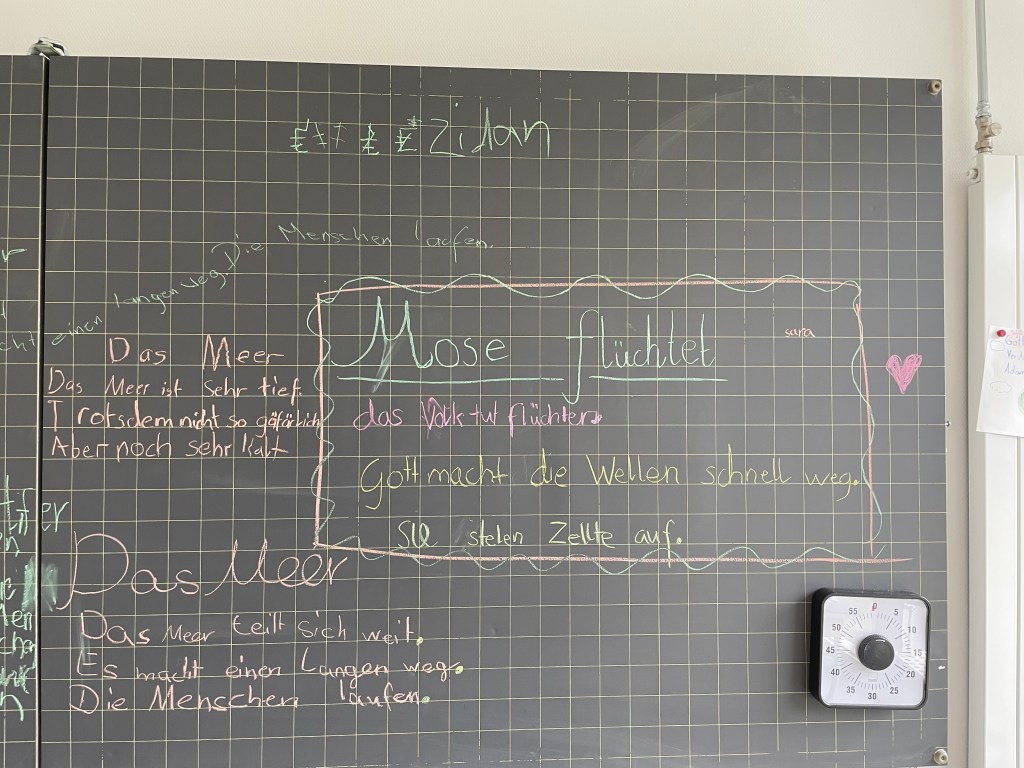 Zidan
Die Menschen laufen.
einen langen weg.
Das Meer
Das Meer ist sehr tief.
Trotsdem nicht so gäfärlich
Aber noch sehr kalt
Mose flüchtet
sara
das Volk tut flüchten.
Gott macht die Wellen schnell weg.
Sie stelen Zellte auf.
Das Meer
Das Meer teilt sich weit.
Es macht einen Langen weg.
Die Menschen läufen.
55 0 5
50 10
45 15
40 20
35 30 25